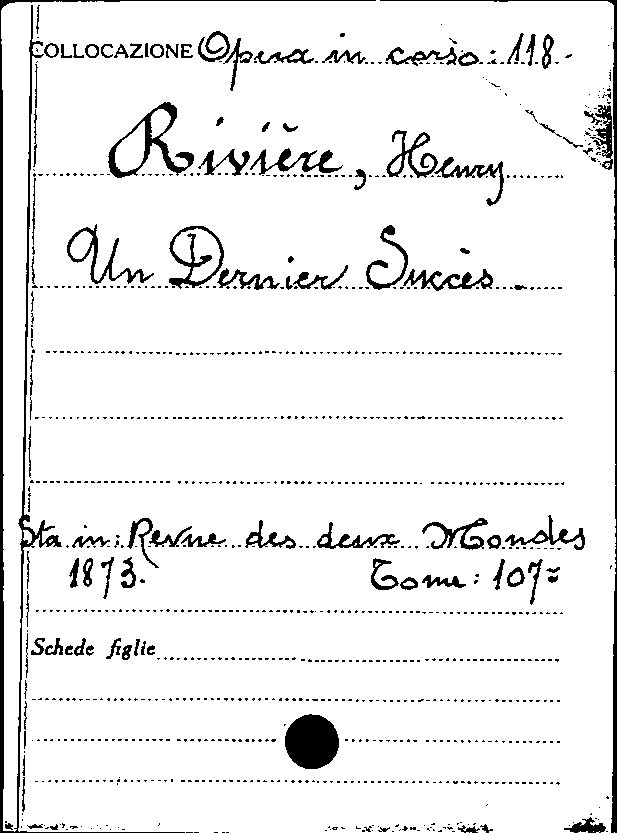 COLLOCAZIONE Opera in corso: 118.
Rivière, Henry
Un Dernier Succès.
Sta in: Revue des deux Mondes
1873. Tome: 107=
Schede figlie